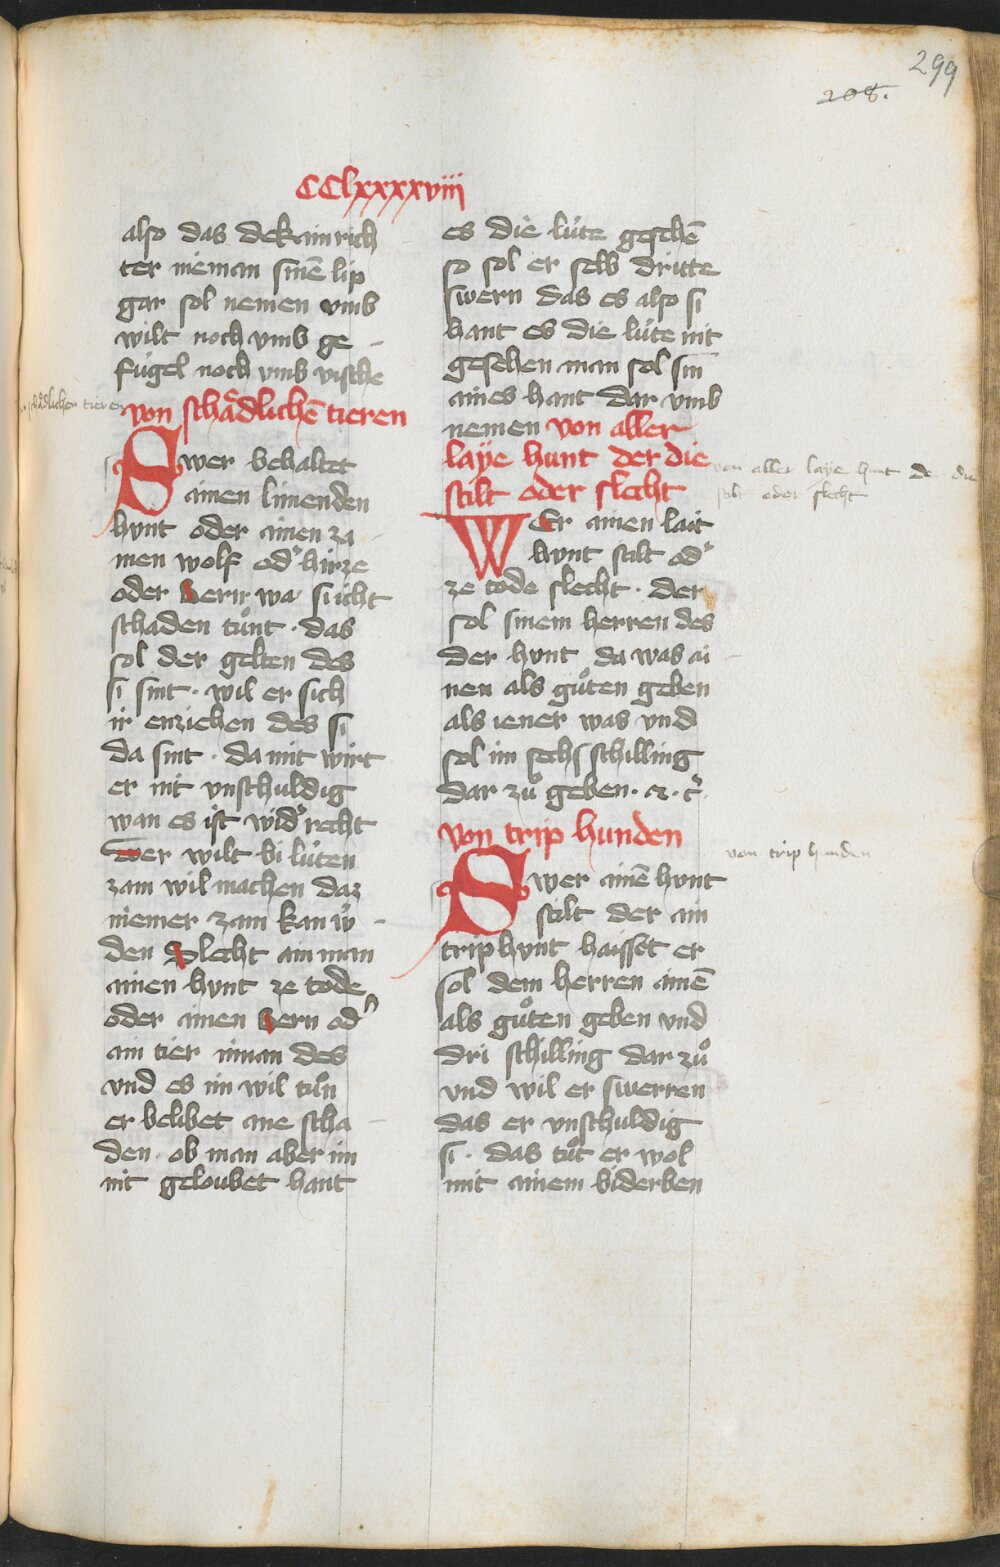 299
208.
CClxxxxviii
also das dekain rich
ter nieman sinē lip
gar sol nemen vmb
wilt noch vmb ge
fúgel noch vmb vische
von schaͤdlichē tieren
Swer behaltet
ainen limenden
hvnt oder ainen za
men wolf od' hirze
oder bern wa si icht
schaden tuͦnt . das
sol der gelten des
si sint . wil er sich
ir enziehen des si
da sint . da mit wirt
er nit vnschuldig
wan es ist wid' recht
wer wilt bi lúten
zam wil machen daz
niemer zam kan w'
den Slecht ain man
ainen hvnt ze tode
oder ainen bern od'
ain tier inman des
vnd es im wil tuͦn
er belibet ane scha
den . ob man aber im
nit geloubet hant
es die lúte gesehē
so sol er selb dritte
swern das es also si
hant es die lúte nit
gesehen man sol sin
aines hant dar vmb
nemen von aller
laÿe hunt der die
stilt oder slecht
WEr ainen lait
hvnt stilt od'
ze tode slecht . der
sol sinem herren des
der hvnt da was ai
nen als guͦten geben
als iener was vnd
sol im sechs schilling
dar zuͦ geben . &. c'
von trip hunden
Swer ainē hvnt
stilt der ain
trip hvnt haisset er
sol dem herren ainē
als guͦten geben vnd
dri schilling dar zuͦ
vnd wil er swerren
das er vnschuldig
si . das tuͦt er wol
mit ainem biderben
schädlichen tieren
von aller laÿe hunt der die
stilt oder slecht
von trip hunden